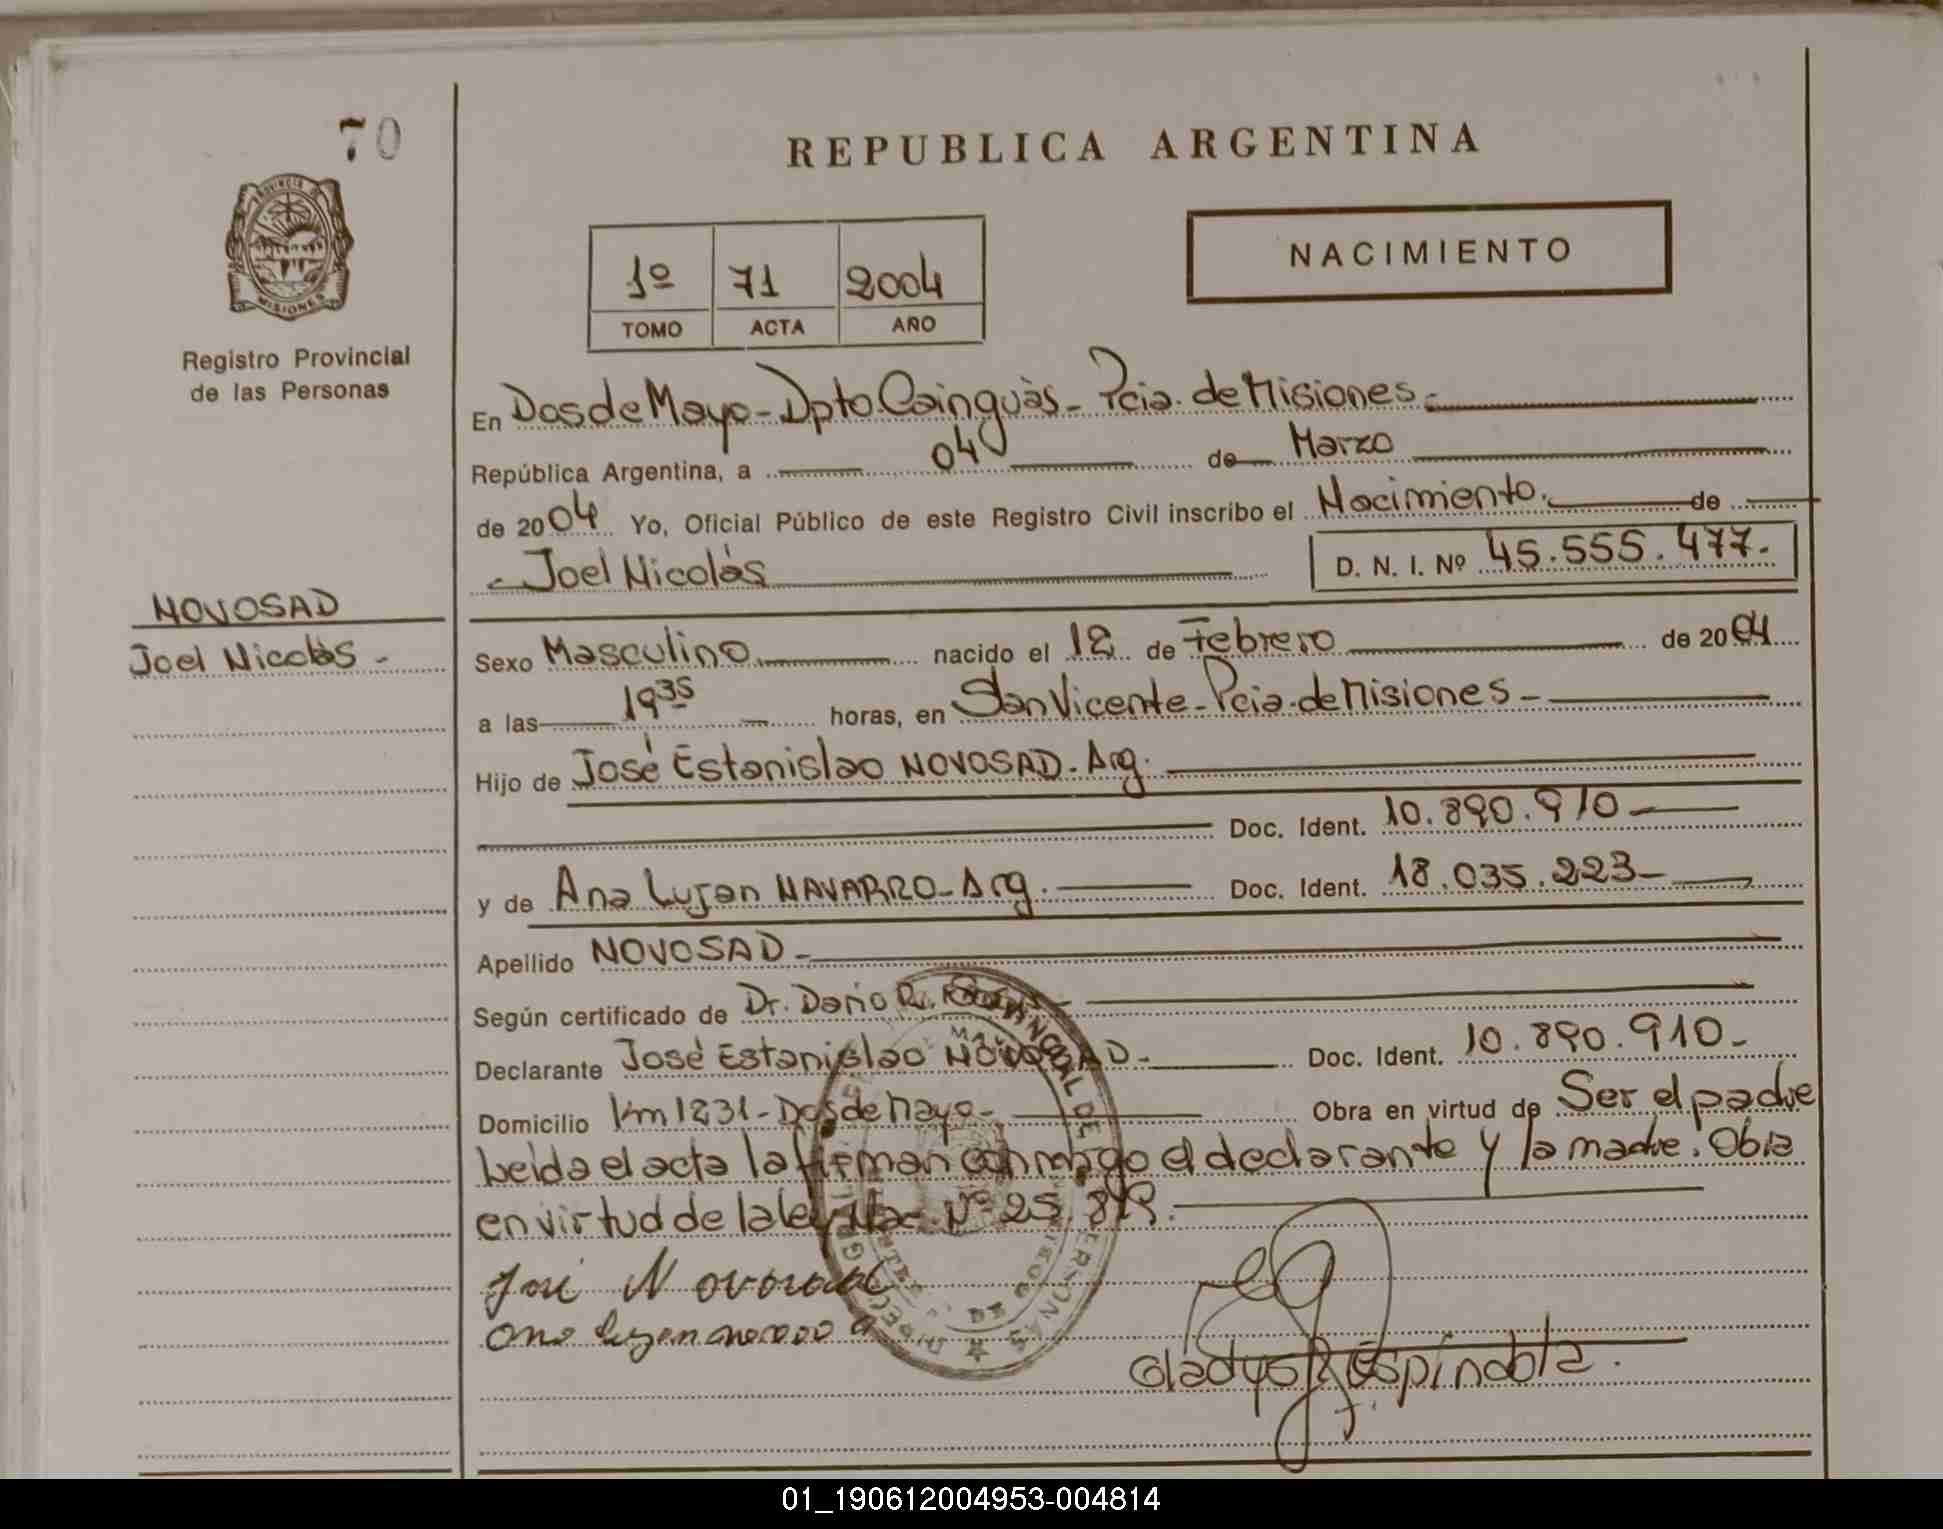 70
REPUBLICA ARGENTINA
PROVINCIA DE
MISIONES
Registro Provincial
de las Personas
1º 71 2004
TOMO ACTA AÑO
NACIMIENTO
En Dos de Mayo - Dpto. Cainguàs - Pcia. de Misiones.
República Argentina, a 04 de Marzo
de 2004 Yo, Oficial Público de este Registro Civil inscribo el Nacimiento. de
Joel Nicolàs
D. N. I. Nº 45.555.477.
NOVOSAD
Joel Nicolàs -
Sexo Masculino nacido el 12 de Febrero de 2004
a las 19 35 horas, en San Vicente - Pcia. de Misiones -
Hijo de José Estanislao NOVOSAD. Arg.
Doc. Ident. 10.890.910
y de Ana Lujan NAVARRO - Arg. Doc. Ident. 18.035.223
Apellido NOVOSAD -
Según certificado de Dr. Dario R.
Declarante José Estanislao NOVOSAD - Doc. Ident. 10.890.910 -
Domicilio Km 1231 - Dos de Mayo - Obra en virtud de Ser el padre
Leida el acta la firman conmigo el declarante y la madre. Obra
en virtud de la ley Nac. Nº 25.819.
José Novosad
Gladys R. Espíndola.
01_190612004953-004814